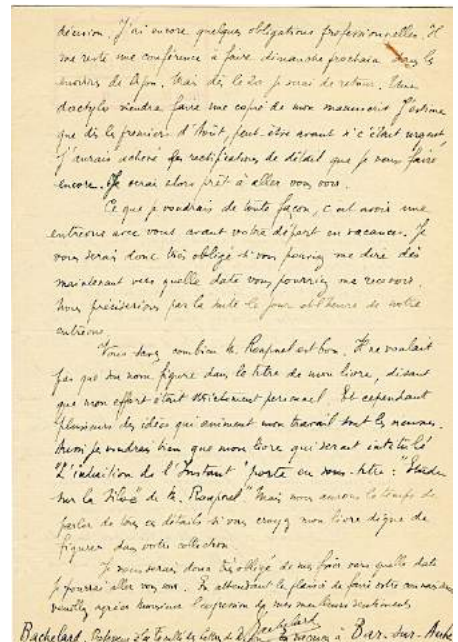 décision. J'ai encore quelques obligations professionnelles. Il
me reste une conférence à faire dimanche prochain dans les
environs de Dijon. Mais dès le 20 je serai de retour. Une
dactylo viendra faire une copie de mon manuscrit. J'estime
que dès les premiers d'Août, peut-être avant si c'était urgent,
j'aurais achevé les rectifications de détail que je veux faire
encore. Je serai alors prêt à aller vous voir.
Ce que je voudrais de toute façon, c'est avoir une
entrevue avec vous avant votre départ en vacances. Je
vous serai donc très obligé si vous pouviez me dire dès
maintenant vers quelle date vous pourriez me recevoir.
Nous préciserions par la suite le jour et l'heure de notre
entrevue.
Vous savez combien M. Roupnel est bon. Il ne voulait
pas que son nom figure dans le titre de mon livre, disant
que mon effort était strictement personnel. Et cependant
plusieurs des idées qui animent mon travail sont les siennes.
Aussi je voudrais bien que mon livre qui serait intitulé
"L'induction de l'Instant" porte en sous-titre : "Etude
sur la Siloë de M. Roupnel" Mais nous aurons le temps de
parler de tous ces détails si vous croyez mon livre digne de
figurer dans votre collection.
Je vous serai donc très obligé de me fixer vers quelle date
je pourrai aller vous voir. En attendant le plaisir de faire votre connaissance
veuillez agréer Monsieur l'expression de mes meilleurs sentiments
Bachelard
Bachelard, Professeur à la Faculté des Lettres de Dijon à Bar-sur-Aube